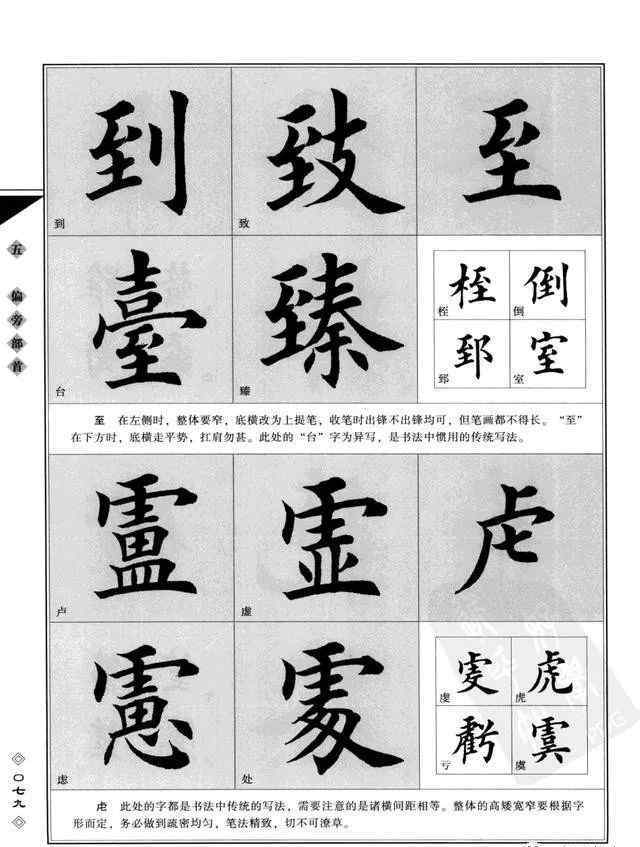 五 偏旁部首
到 致 至
到 致
臺 臻
台 臻
桎 倒
桎 倒
郅 室
郅 室
至 在左侧时，整体要窄，底横改为上提笔，收笔时出锋不出锋均可，但笔画都不得长。“至”
在下方时，底横走平势，扛肩勿甚。此处的“台”字为异写，是书法中惯用的传统写法。
盧 虛 虍
卢 虚
慮 處
虑 处
虔 虎
虔 虎
虧 虞
亏 虞
虍 此处的字都是书法中传统的写法，需要注意的是诸横间距相等。整体的高矮宽窄要根据字
形而定，务必做到疏密均匀，笔法精致，切不可潦草。
〇七九